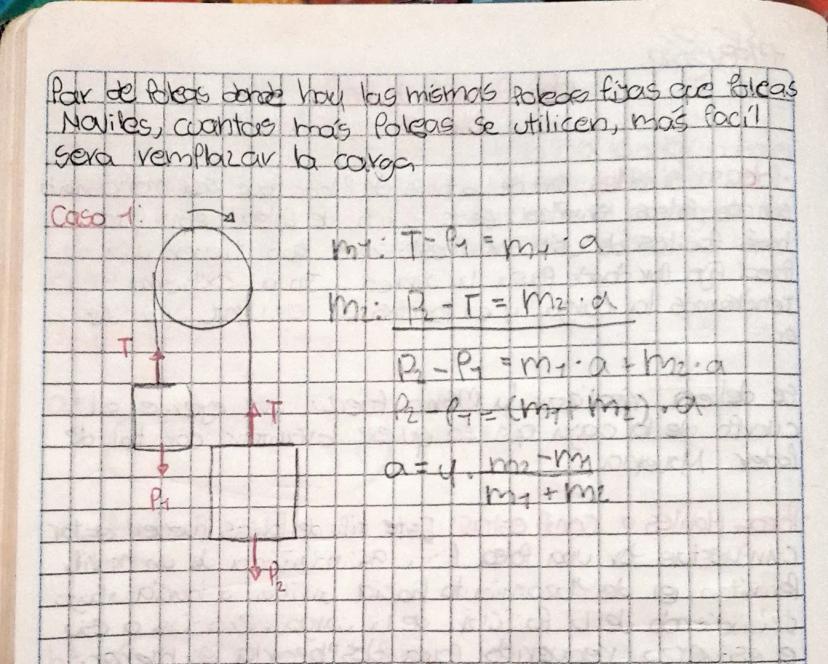 Par de Poleas donde hay las mismas poleas fijas que Poleas
Moviles, cuantas más Poleas se utilicen, más facil
sera remplazar la carga
Caso 1:
m1: T - P1 = m1 · a
m2: P2 - T = m2 · a
P2 - P1 = m1 · a + m2 · a
P2 - P1 = (m1 + m2) · a
a = y · m2 - m1
m1 + m2
T
T
P1
P2